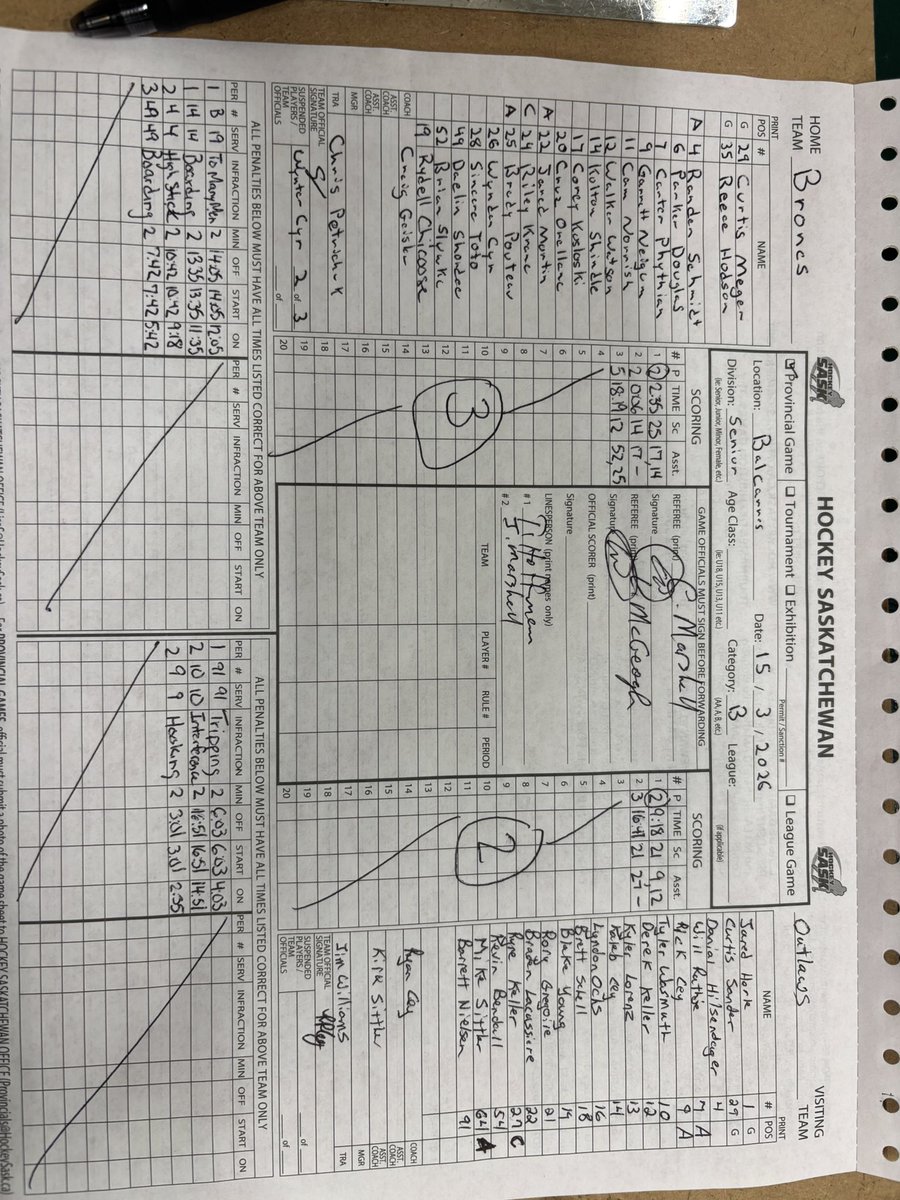 HOCKEY SASKATCHEWAN
HOCKEY SASK
HOCKEY SASK
☑ Provincial Game ☐ Tournament ☐ Exhibition ☐ League Game
Permit / Sanction#
Location: Balcarres Date: 15 / 3 / 2026
Division: Senior Age Class: Category: B League:
(ie: Senior, Junior, Minor, Female, etc.) (ie: U18, U15, U13, U11 etc.) (AA, A, B, etc.) (if applicable)
HOME TEAM Broncs
PRINT
POS # NAME
G 29 Curtis Meger
G 35 Reece Hodson
A 4 Randen Schmidt
6 Parker Douglas
7 Carter Phythian
9 Garrett Neigum
11 Cam Norrish
12 Walker Watson
14 Kolton Shindle
17 Corey Kosloski
20 Cruz Orellana
A 22 Jared Martin
C 24 Riley Krane
A 25 Brady Pouteau
26 Wynden Cyr
28 Sincere Toto
49 Daelin Shordee
52 Brian Slywka
19 Rydell Chicoose
COACH Craig Geisler
ASST. COACH
ASST. COACH
MGR
TRA Chris Petrichuk
TEAM OFFICIAL SIGNATURE
SUSPENDED PLAYERS / TEAM OFFICIALS Wynter Cyr 2 of 3
of
SCORING
# P TIME Sc Asst.
1 2 2:35 25 17,14
2 2 0:06 14 17 -
3 5 18:19 12 52,25
3
GAME OFFICIALS MUST SIGN BEFORE FORWARDING
REFEREE (print) Marshell
Signature
REFEREE (print) McGeogh
Signature
OFFICIAL SCORER (print)
Signature
LINESPERSON (print names only)
#1 T. Hoffman
#2 J. Marshell
TEAM PLAYER # RULE # PERIOD
SCORING
# P TIME Sc Asst.
1 2 9:18 21 9,12
2 3 16:41 21 27 -
2
Outlaws VISITING TEAM
PRINT
NAME # POS
Jared Herle 1 G
Curtis Sander 29 G
Danial Hilsendager 4
Will Ruthie 7 A
Rick Cey 9 A
Tyler Warmuth 10
Derek Keller 12
Kyler Lorenz 13
Kaleb Cey 14
Lyndon Ochs 16
Brett Schell 18
Blake Young 19
Rory Gregoire 21
Braden Lacassiere 22
Ryne Keller 27 C
Kevin Bendall 54
Mike Sittler 64 A
Barrett Nielsen 91
Ryan Cey COACH
ASST. COACH
Kirk Sittler ASST. COACH
MGR
Jim Williams TRA
TEAM OFFICIAL SIGNATURE
SUSPENDED PLAYERS / TEAM OFFICIALS
of
of
ALL PENALTIES BELOW MUST HAVE ALL TIMES LISTED CORRECT FOR ABOVE TEAM ONLY
PER # SERV INFRACTION MIN OFF START ON PER # SERV INFRACTION MIN OFF START ON
1 B 19 To Many Men 2 14:05 14:05 12:05
1 14 14 Boarding 2 13:35 13:35 11:35
2 4 4 High Stick 2 10:42 10:42 9:18
3 49 49 Boarding 2 7:42 7:42 5:42
ALL PENALTIES BELOW MUST HAVE ALL TIMES LISTED CORRECT FOR ABOVE TEAM ONLY
PER # SERV INFRACTION MIN OFF START ON PER # SERV INFRACTION MIN OFF START ON
1 91 91 Tripping 2 6:03 6:03 4:03
2 10 10 Interference 2 16:51 16:51 14:51
2 9 9 Hooking 2 3:01 3:01 2:35
For PROVINCIAL GAMES, official must submit a photo of the game sheet to HOCKEY SASKATCHEWAN OFFICE (Provincials@HockeySask.ca)